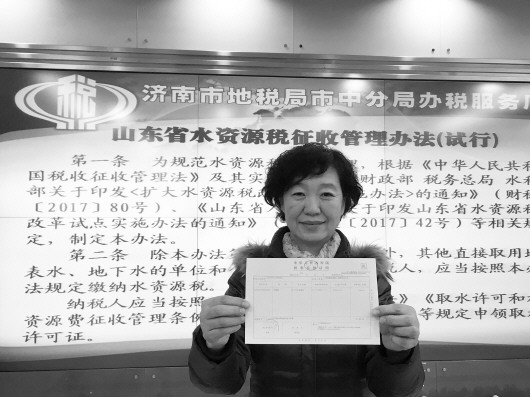 税
济南市地税局市中分局办税服务厅
山东省水资源税征收管理办法(试行)
第一条 为规范水资源税 根据《中华人民共和
国税收征收管理法》及其实 财政部 税务总局 水
部关于印发<扩大水资源税改 办法>的通知》(财税
〔2017〕80号)、《山东省 关于印发山东省水资源税
改革试点实施办法的通知》 〔2017〕42号)等相关规
定,制定本办法。
第二条 除本办法 其他直接取用地
表水、地下水的单位和 人,应当按照本
法规定缴纳水资源税。
纳税人应当按照 》《取水许可和水
资源费征收管理条例 等规定申领取水
许可证。